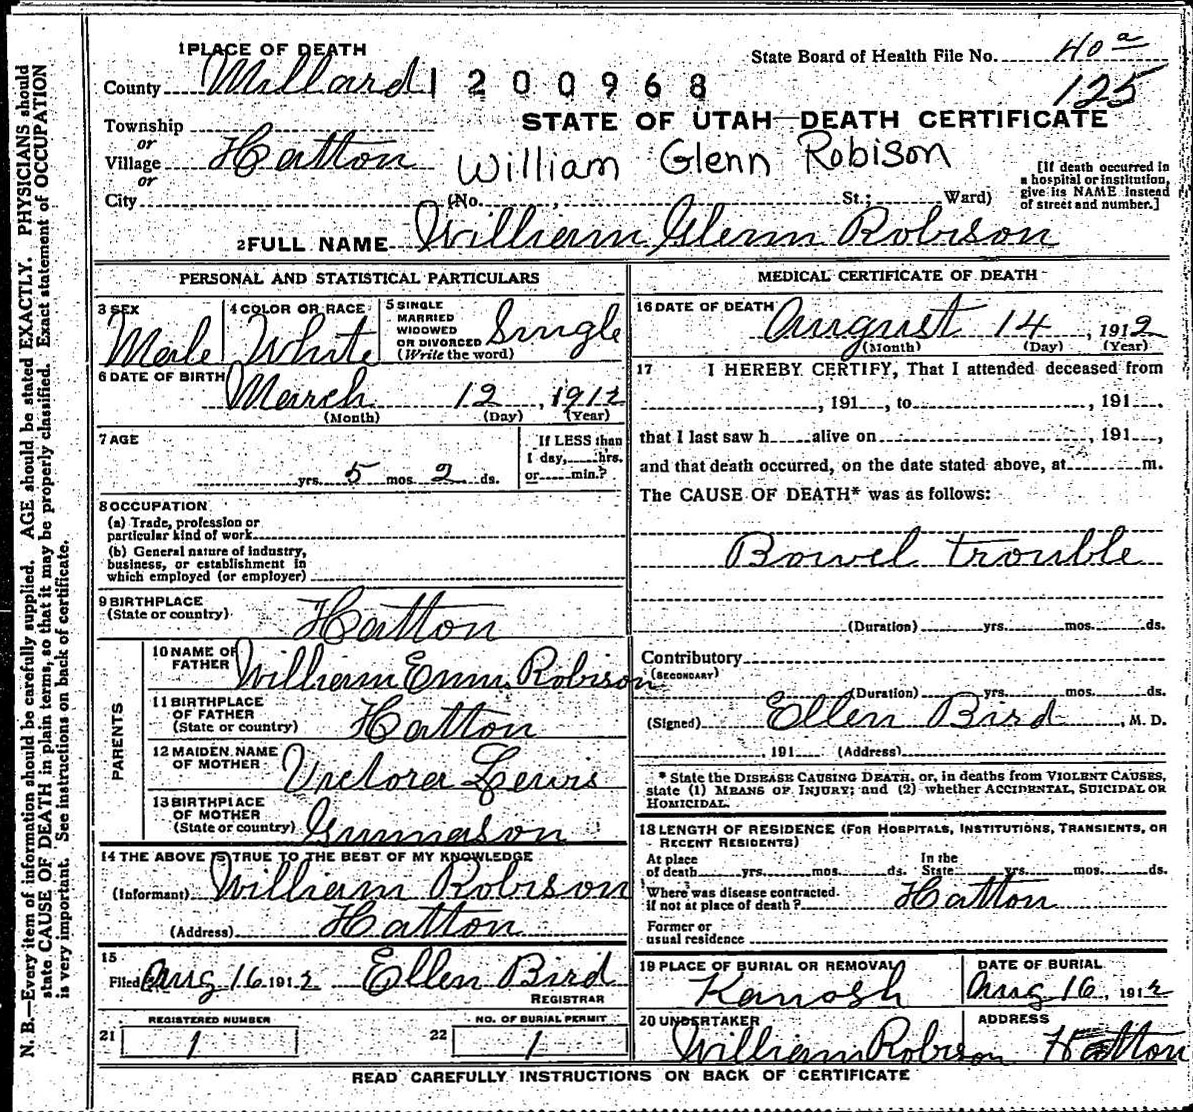 1 PLACE OF DEATH
State Board of Health File No. 40 a
County Millard 1 200968
125
STATE OF UTAH—DEATH CERTIFICATE
Township
or
Village Hatton
William Glenn Robison
or
City (No. , St.; Ward)
[If death occurred in
a hospital or institution,
give its NAME instead
of street and number.]
2 FULL NAME William Glenn Robison
PERSONAL AND STATISTICAL PARTICULARS
3 SEX
Male
4 COLOR OR RACE
White
5 SINGLE
MARRIED
WIDOWED
OR DIVORCED
(Write the word)
Single
6 DATE OF BIRTH
March 12, 1912
(Month) (Day) (Year)
7 AGE
yrs. 5 mos. 2 ds.
If LESS than
1 day, hrs.
or min.?
8 OCCUPATION
(a) Trade, profession or
particular kind of work
(b) General nature of industry,
business, or establishment in
which employed (or employer)
9 BIRTHPLACE
(State or country)
Hatton
PARENTS
10 NAME OF
FATHER
William Robison
11 BIRTHPLACE
OF FATHER
(State or country)
Hatton
12 MAIDEN NAME
OF MOTHER
Victora Lewis
13 BIRTHPLACE
OF MOTHER
(State or country)
14 THE ABOVE IS TRUE TO THE BEST OF MY KNOWLEDGE
(Informant) William Robison
(Address) Hatton
15
Filed Aug 16 1912 Ellen Bird
REGISTRAR
REGISTERED NUMBER
21 1
NO. OF BURIAL PERMIT
22 1
MEDICAL CERTIFICATE OF DEATH
16 DATE OF DEATH
August 14, 1912
(Month) (Day) (Year)
17 I HEREBY CERTIFY, That I attended deceased from
, 191 , to , 191 .
that I last saw h alive on , 191 ,
and that death occurred, on the date stated above, at m.
The CAUSE OF DEATH* was as follows:
Bowel trouble
(Duration) yrs. mos. ds.
Contributory
(SECONDARY)
(Duration) yrs. mos. ds.
(Signed) Ellen Bird, M. D.
, 191 (Address)
* State the DISEASE CAUSING DEATH, or, in deaths from VIOLENT CAUSES,
state (1) MEANS OF INJURY; and (2) whether ACCIDENTAL, SUICIDAL OR
HOMICIDAL.
18 LENGTH OF RESIDENCE (FOR HOSPITALS, INSTITUTIONS, TRANSIENTS, OR
RECENT RESIDENTS)
At place
of death yrs. mos. ds.
In the
State yrs. mos. ds.
Where was disease contracted.
if not at place of death? Hatton
Former or
usual residence
19 PLACE OF BURIAL OR REMOVAL
Kanosh
DATE OF BURIAL
Aug 16, 1912
20 UNDERTAKER
William Robison
ADDRESS
Hatton
READ CAREFULLY INSTRUCTIONS ON BACK OF CERTIFICATE
N. B.—Every item of information should be carefully supplied. AGE should be stated EXACTLY. PHYSICIANS should
state CAUSE OF DEATH in plain terms, so that it may be properly classified. Exact statement of OCCUPATION
is very important. See instructions on back of certificate.